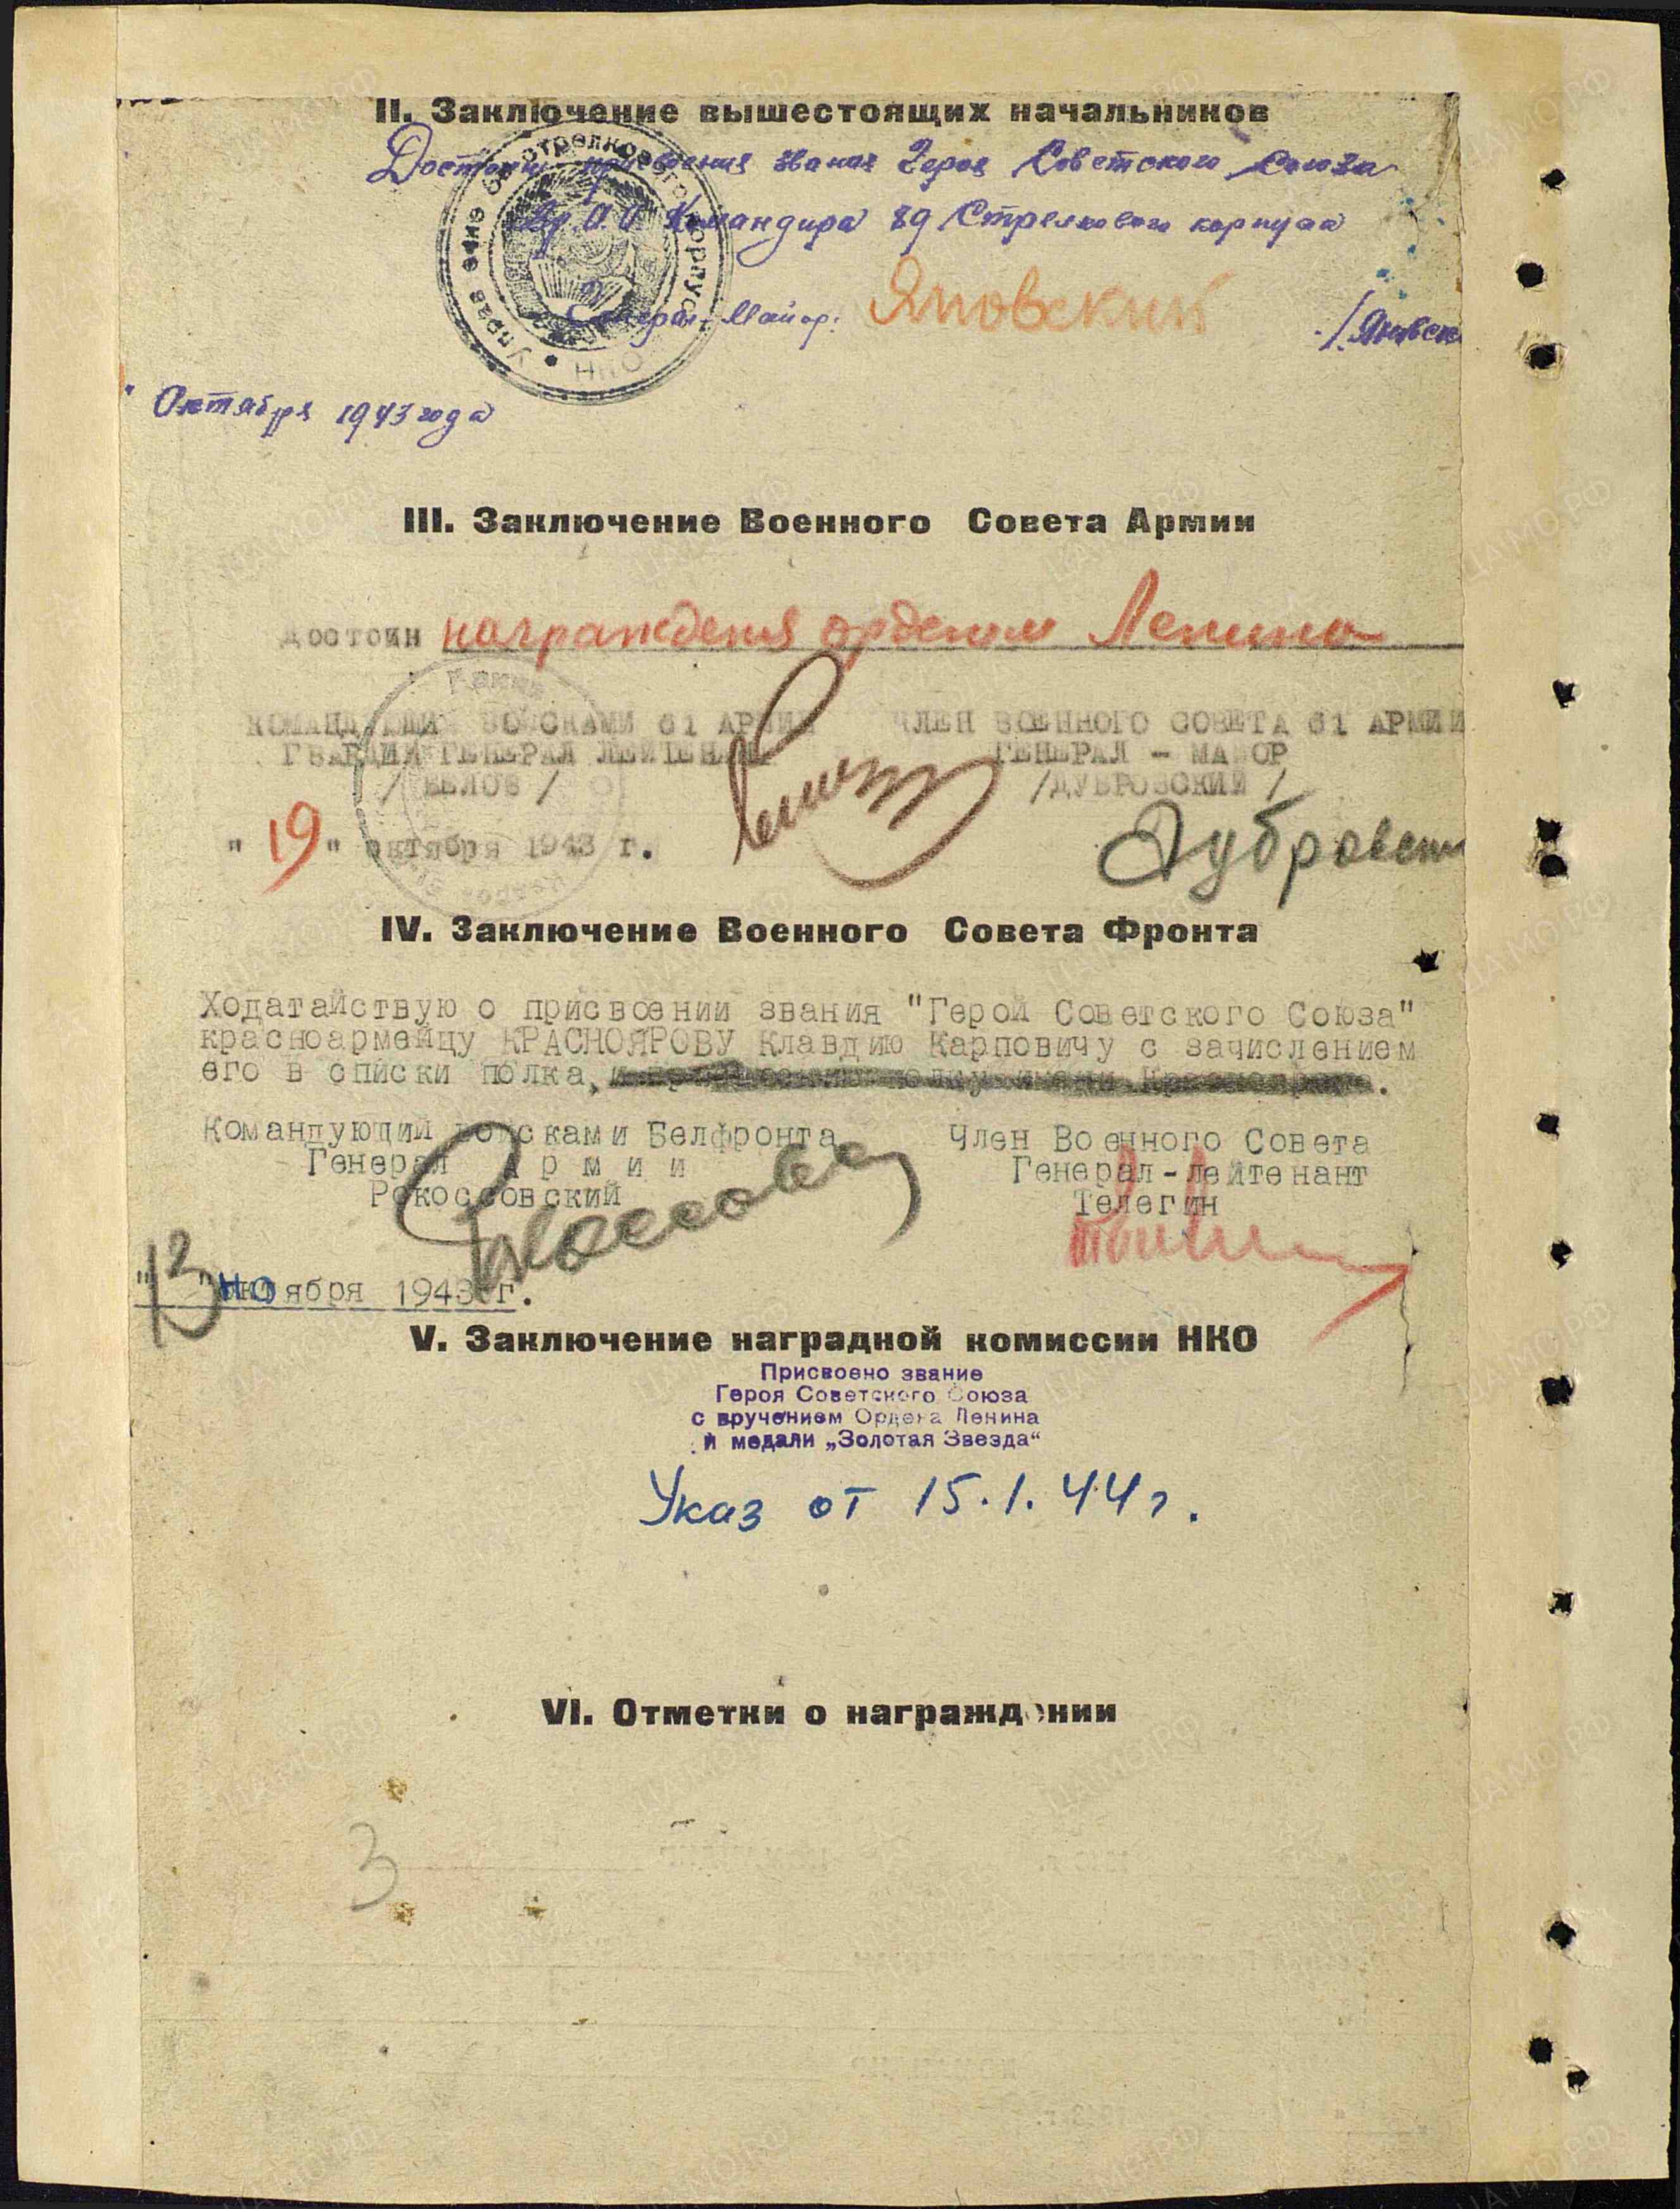 II. Заключение вышестоящих начальников
Достоин присвоения звания Героя Советского Союза
Вр. И. О. Командира 89 Стрелкового корпуса
Генерал-Майор: Яновский /Яновск
Октября 1943 года
III. Заключение Военного Совета Армии
Достоин награждения орденом Ленина
КОМАНДУЮЩИЙ ВОЙСКАМИ 61 АРМИИ ЧЛЕН ВОЕННОГО СОВЕТА 61 АРМИИ
ГВАРДИИ ГЕНЕРАЛ ЛЕЙТЕНАНТ ГЕНЕРАЛ - МАЙОР
/ БЕЛОВ / /ДУБРОВСКИЙ /
Дубровский
" 19 " октября 1943 г.
IV. Заключение Военного Совета Фронта
Ходатайствую о присвоении звания "Герой Советского Союза"
красноармейцу КРАСНОЯРОВУ Клавдию Карповичу с зачислением
его в списки полка,
Командующий войсками Белфронта Член Военного Совета
Генерал Армии Генерал-лейтенант
Рокоссовский Телегин
"13" ноября 1943 г.
V. Заключение наградной комиссии НКО
Присвоено звание
Героя Советского Союза
с вручением Ордена Ленина
и медали „Золотая Звезда“
Указ от 15.1.44 г.
VI. Отметки о награждении
3